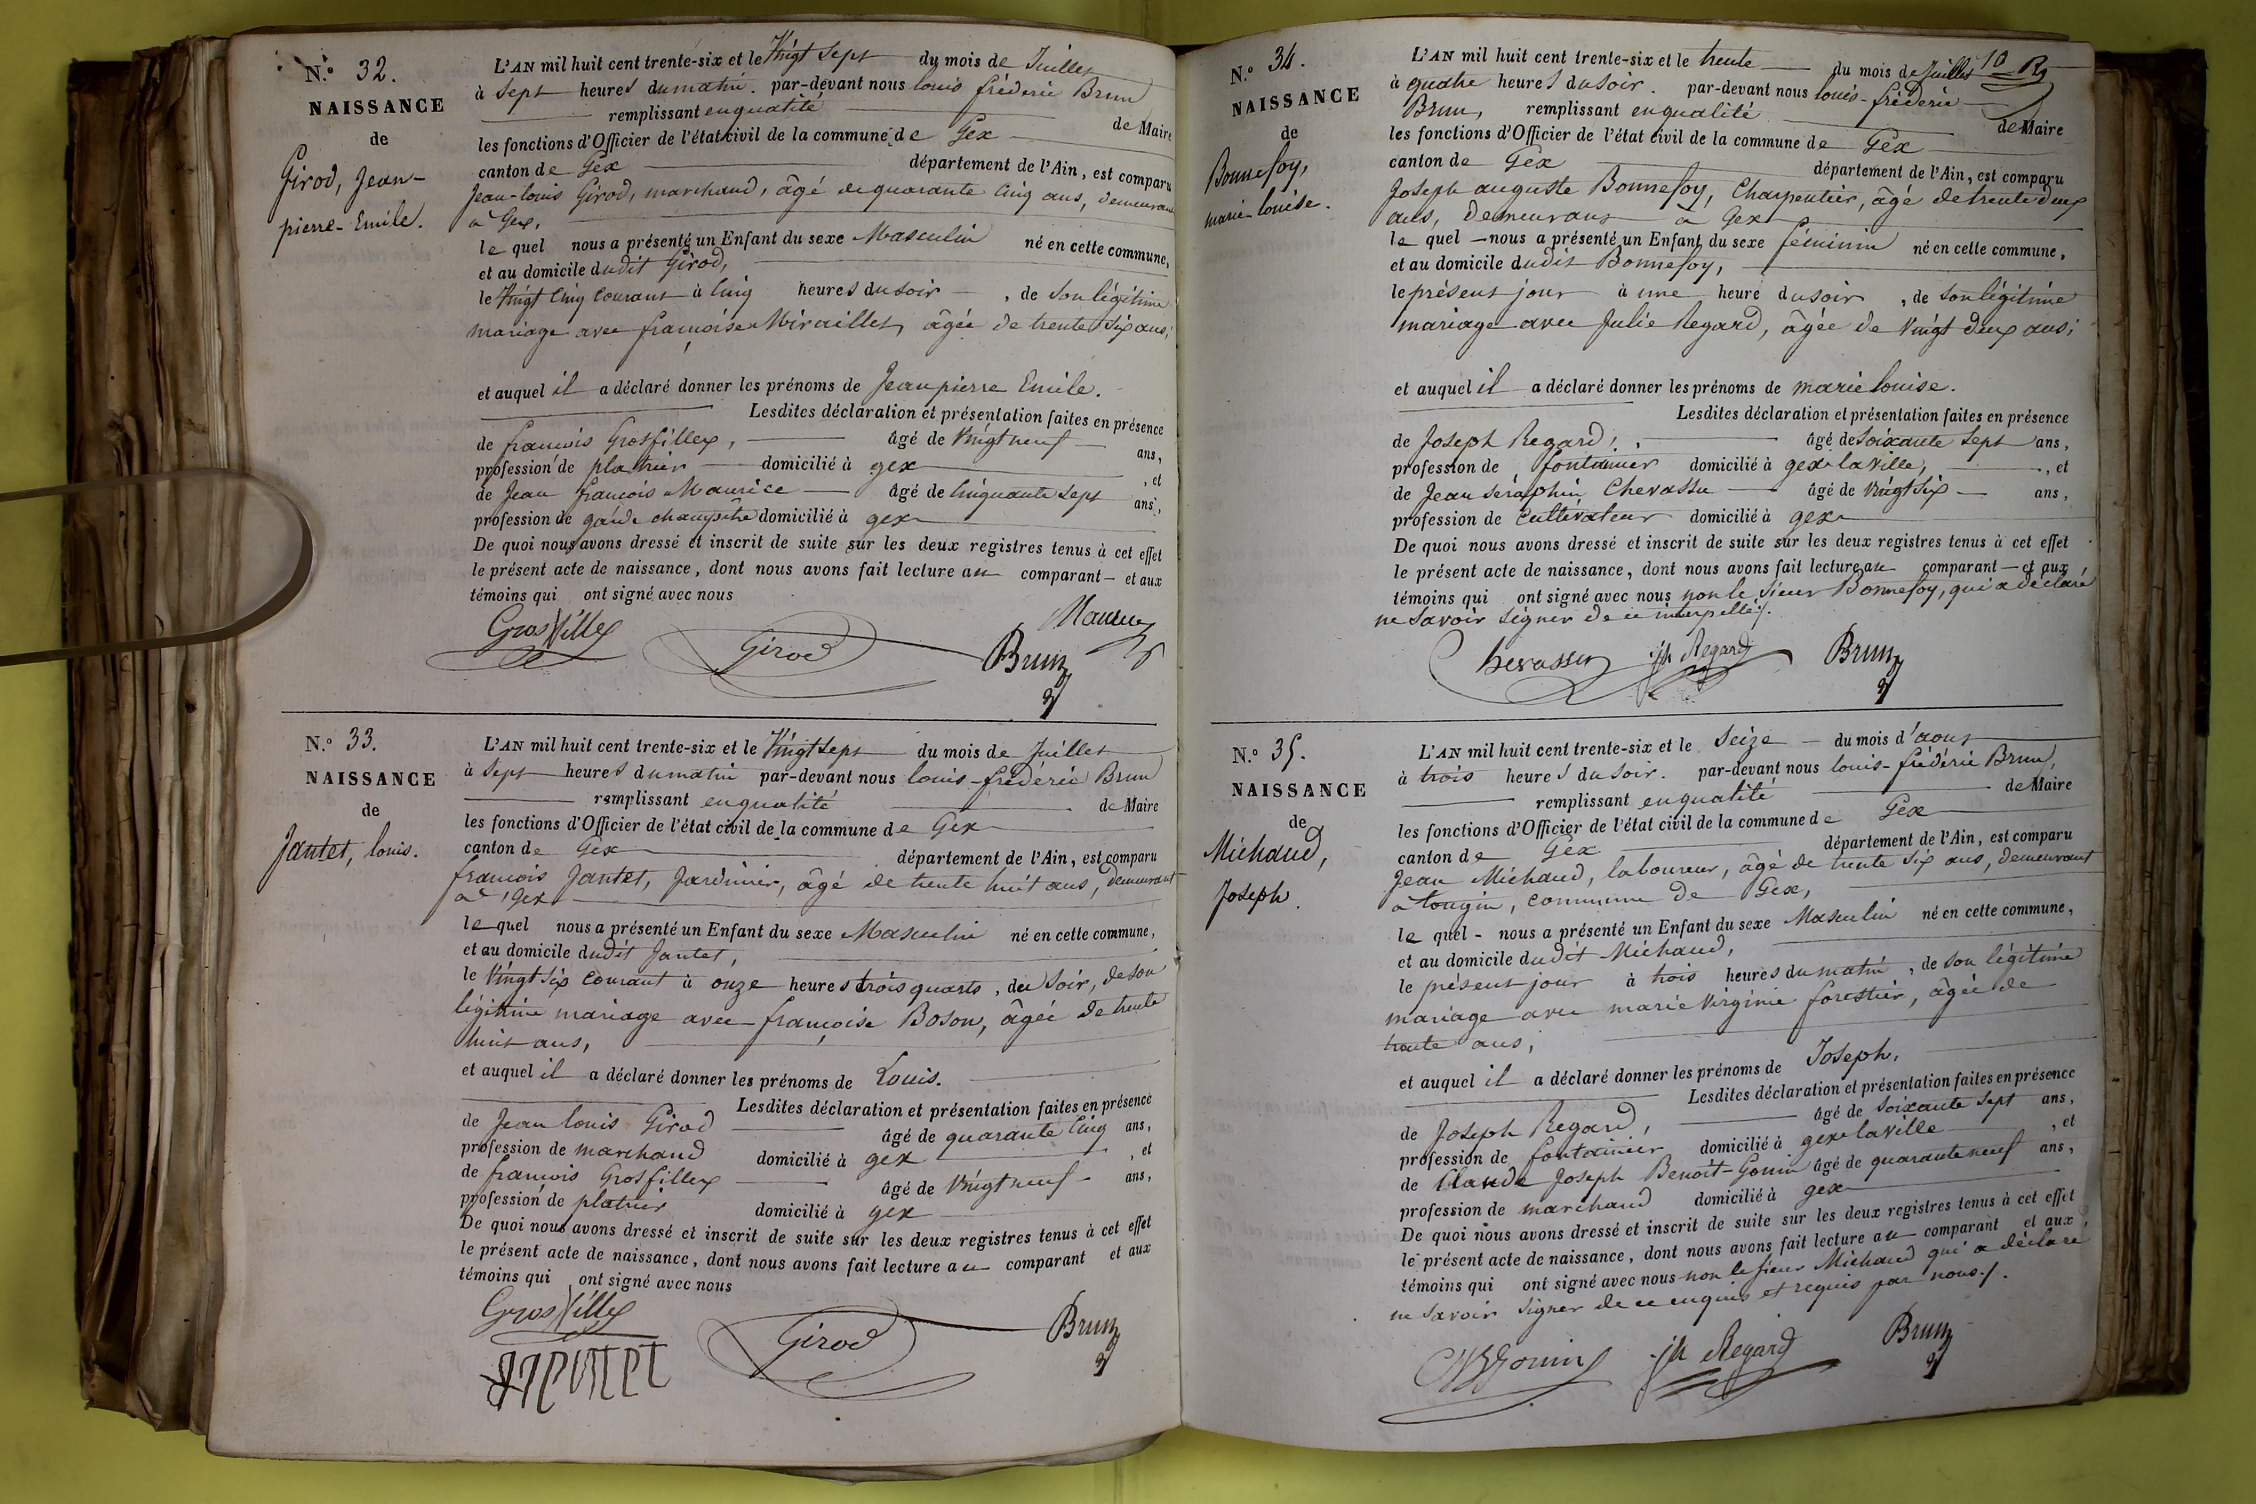 N.° 32.
NAISSANCE
de
Girod, Jean-
pierre-Emile.
L'AN mil huit cent trente-six et le Vingt Sept du mois de Juillet
à Sept heures du matin. par-devant nous louis fréderic Brun
remplissant en qualité de Maire
les fonctions d'Officier de l'état civil de la commune de Gex
canton de Gex département de l'Ain, est comparu
Jean-louis Girod, marchand, âgé de quarante Cinq ans, demeurant
à Gex,
le quel nous a présenté un Enfant du sexe Masculin né en cette commune,
et au domicile dudit Girod,
le Vingt Cinq Courant à Cinq heures du soir, de Son légitime
mariage avec françoise Mirailles, âgée de trente Six ans;
et auquel il a déclaré donner les prénoms de Jean pierre Emile.
Lesdites déclaration et présentation faites en présence
de françois Grosfillex, âgé de Vingt neuf ans,
profession de platrier domicilié à gex, et
de Jean françois Maurice âgé de Cinquante Sept ans,
profession de garde champêtre domicilié à gex
De quoi nous avons dressé et inscrit de suite sur les deux registres tenus à cet effet
le présent acte de naissance, dont nous avons fait lecture au comparant et aux
témoins qui ont signé avec nous
Grosfillex Girod Brun Maurice
N.° 33.
NAISSANCE
de
Jantet, louis.
L'AN mil huit cent trente-six et le Vingt Sept du mois de Juillet
à Sept heures du matin par-devant nous louis-fréderic Brun
remplissant en qualité de Maire
les fonctions d'Officier de l'état civil de la commune de Gex
canton de Gex département de l'Ain, est comparu
françois Jantet, Jardinier, âgé de trente huit ans, demeurant
à Gex
le quel nous a présenté un Enfant du sexe Masculin né en cette commune,
et au domicile dudit Jantet,
le Vingt Six Courant à onze heures trois quarts, du Soir, de son
légitime mariage avec françoise Boson, âgée de trente
huit ans,
et auquel il a déclaré donner les prénoms de Louis.
Lesdites déclaration et présentation faites en présence
de Jean louis Girod âgé de quarante Cinq ans,
profession de marchand domicilié à gex, et
de françois Grosfillex âgé de Vingt neuf ans,
profession de platrier domicilié à gex
De quoi nous avons dressé et inscrit de suite sur les deux registres tenus à cet effet
le présent acte de naissance, dont nous avons fait lecture au comparant et aux
témoins qui ont signé avec nous
Grosfillex Girod Brun
Jantet
10 Rg
N.° 34.
NAISSANCE
de
Bonnefoy,
marie-louise.
L'AN mil huit cent trente-six et le trente du mois de Juillet
à quatre heures du soir. par-devant nous louis-fréderic
Brun, remplissant en qualité de Maire
les fonctions d'Officier de l'état civil de la commune de Gex
canton de Gex département de l'Ain, est comparu
Joseph auguste Bonnefoy, Charpentier, âgé de trente deux
ans, demeurant à Gex
le quel nous a présenté un Enfant du sexe féminin né en cette commune,
et au domicile dudit Bonnefoy,
le présent jour à une heure du soir, de Son légitime
mariage avec Julie Regard, âgée de Vingt deux ans;
et auquel il a déclaré donner les prénoms de marie louise.
Lesdites déclaration et présentation faites en présence
de Joseph Regard, âgé de Soixante Sept ans,
profession de fontainier domicilié à gex-la ville, et
de Jean Séraphin Chevassu âgé de Vingt Six ans,
profession de Cultivateur domicilié à gex
De quoi nous avons dressé et inscrit de suite sur les deux registres tenus à cet effet
le présent acte de naissance, dont nous avons fait lecture au comparant et aux
témoins qui ont signé avec nous non le Sieur Bonnefoy, qui a déclaré
ne Savoir Signer de ce interpellé /.
Chevassu jh Regard Brun
N.° 35.
NAISSANCE
de
Michaud,
Joseph.
L'AN mil huit cent trente-six et le Seize du mois d'aout
à trois heures du soir. par-devant nous louis-fréderic Brun,
remplissant en qualité de Maire
les fonctions d'Officier de l'état civil de la commune de Gex
canton de Gex département de l'Ain, est comparu
Jean Michaud, laboureur, âgé de trente Six ans, demeurant
à tougin, commune de Gex,
le quel - nous a présenté un Enfant du sexe Masculin né en cette commune,
et au domicile dudit Michaud,
le présent jour à trois heures du matin, de son légitime
mariage avec marie Virginie forestier, âgée de
trente ans,
et auquel il a déclaré donner les prénoms de Joseph.
Lesdites déclaration et présentation faites en présence
de Joseph Regard, âgé de Soixante Sept ans,
profession de fontainier domicilié à gex-la ville, et
de Claude Joseph Benoit-Gonin âgé de quarante neuf ans,
profession de marchand domicilié à gex
De quoi nous avons dressé et inscrit de suite sur les deux registres tenus à cet effet
le présent acte de naissance, dont nous avons fait lecture au comparant et aux
témoins qui ont signé avec nous non le Sieur Michaud qui a déclaré
ne Savoir Signer de ce enquis et requis par nous /.
Gonin jh Regard Brun